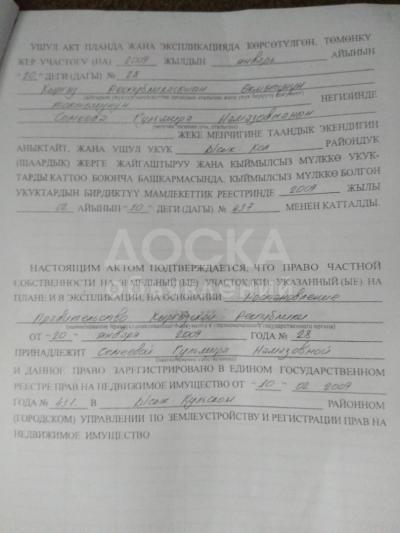 УШУЛ АКТ ПЛАНДА ЖАНА ЭКСПЛИКАЦИЯДА КӨРСӨТҮЛГӨН, ТӨМӨНКҮ
ЖЕР УЧАСТОГУ (НА) 2009 ЖЫЛДЫН январь АЙЫНЫН
"20" ДЕГИ (ДАГЫ) № 28
Кыргыз Республикасынын Өкмөтүнүн
токтомунун НЕГИЗИНДЕ
ЖЕКЕ МЕНЧИГИНЕ ТААНДЫК ЭКЕНДИГИН
АНЫКТАЙТ, ЖАНА УШУЛ УКУК Ысык-Кол РАЙОНДУК
(ШААРДЫК) ЖЕРГЕ ЖАЙГАШТЫРУУ ЖАНА КЫЙМЫЛСЫЗ МҮЛККӨ УКУК-
ТАРДЫ КАТТОО БОЮНЧА БАШКАРМАСЫНДА, КЫЙМЫЛСЫЗ МҮЛККӨ БОЛГОН
УКУКТАРДЫН БИРДИКТҮҮ МАМЛЕКЕТТИК РЕЕСТРИНДЕ 2009 ЖЫЛЫ
02 АЙЫНЫН "10" ДЕГИ (ДАГЫ) № 437 МЕНЕН КАТТАЛДЫ.
ДОСКА
НАСТОЯЩИМ АКТОМ ПОДТВЕРЖДАЕТСЯ, ЧТО ПРАВО ЧАСТНОЙ
СОБСТВЕННОСТИ НА ЗЕМЕЛЬНЫЙ(ЫЕ) УЧАСТОК(КИ), УКАЗАННЫЙ (ЫЕ) НА
ПЛАНЕ И В ЭКСПЛИКАЦИИ, НА ОСНОВАНИИ Постановление
Правительство Кыргызской Республики
ОТ "20" января 2009 ГОДА № 28
ПРИНАДЛЕЖИТ
И ДАННОЕ ПРАВО ЗАРЕГИСТРИРОВАНО В ЕДИНОМ ГОСУДАРСТВЕННОМ
РЕЕСТРЕ ПРАВ НА НЕДВИЖИМОЕ ИМУЩЕСТВО ОТ "10" 02 2009
ГОДА № 437 В Ысык-Кульском РАЙОННОМ
(ГОРОДСКОМ) УПРАВЛЕНИИ ПО ЗЕМЛЕУСТРОЙСТВУ И РЕГИСТРАЦИИ ПРАВ НА
НЕДВИЖИМОЕ ИМУЩЕСТВО